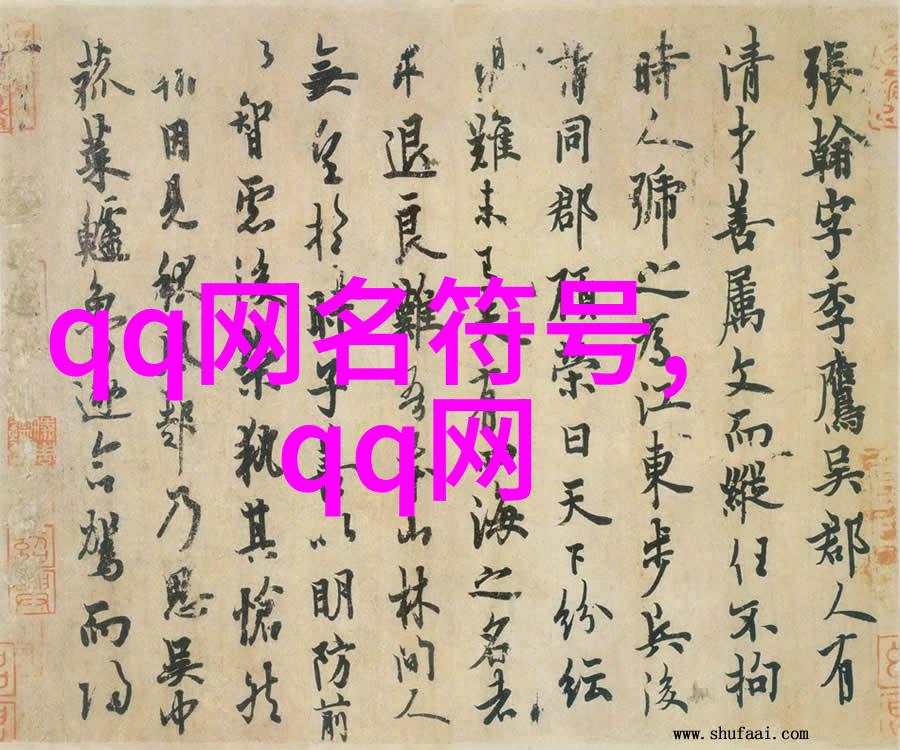 張翰字季鷹吳郡人有
清才善屬文而縱任不拘
時人號之為江東步兵後
同郡顧榮曰天下紛紜
難未已夫有四海之名者
求退良難吾本山林間人
無望於時子善以明防前
以智慮後榮執其愴然
翰因見秋風起乃思吳中
菰菜鱸魚遂命駕而歸
qq网名符号,
qq网
www.shufaai.com